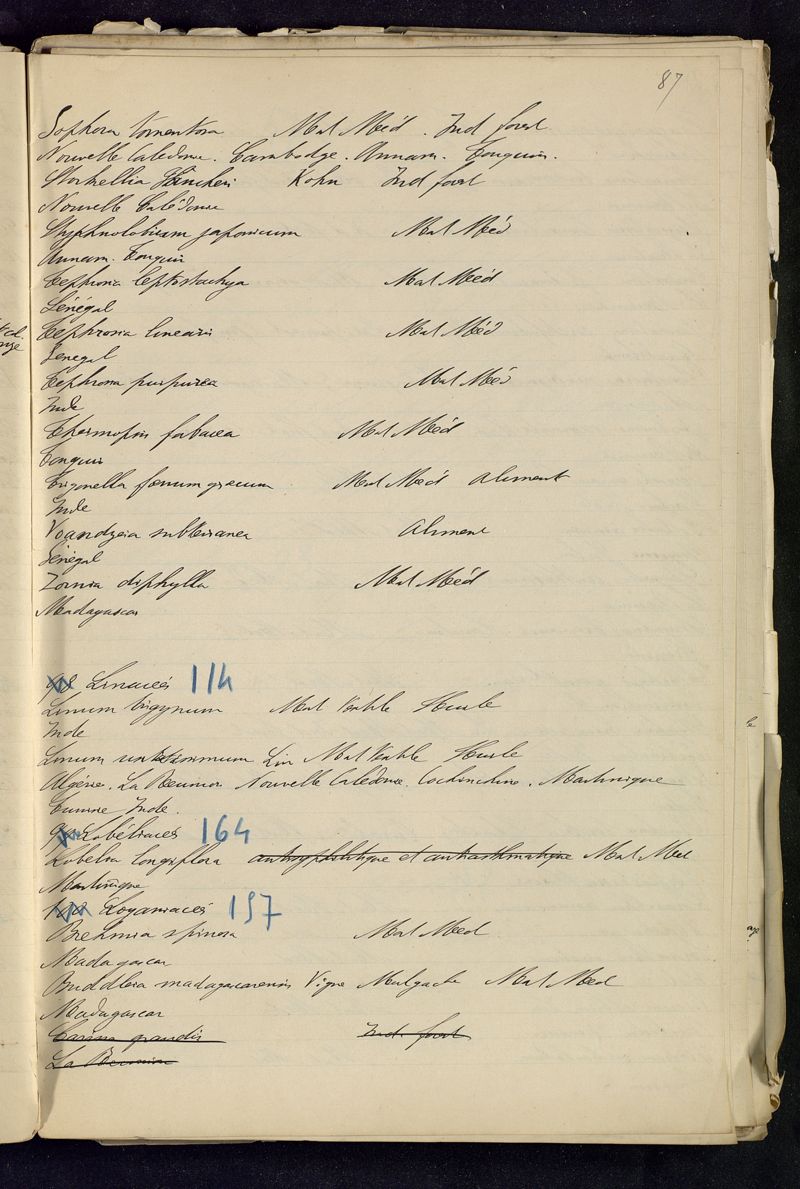 87
Sophora tomentosa Mat Méd. Ind forest
Nouvelle Calédonie. Cambodge. Annam. Tonquin.
Storkellia Pancheri Kohn Ind forest
Nouvelle Calédonie
Styphnolobium japonicum Mat Méd
Annam. Tonquin
Tephrosia leptostachya Mat Méd
Sénégal
Tephrosia linearis Mat Méd
Senegal
Tephrosia purpurea Mat Méd
Inde
Thermopsis fabacea Mat Méd
Tonquin
Trigonella fœnum grœcum Mat Méd Aliment
Inde
Voandzeia subterranea Aliment
Sénégal
Zornia diphylla Mat Méd
Madagascar
98 Linacées 114
Linum trigynum Mat textile Huile
Inde
Linum usitatissimum Lin Mat textile Huile
Algérie. La Réunion Nouvelle Calédonie. Cochinchine. Martinique
Tunisie Inde.
Lobéliacées 164
Lobelia longiflora antisyphilitique et antiasthmatique Mat Med
Martinique
Loganiacées 157
Brehmia spinosa Mat Med
Madagascar
Buddleia madagascarensis Vigne Malgache Mat Med
Madagascar
Carissa grandis Ind. forest
La Réunion